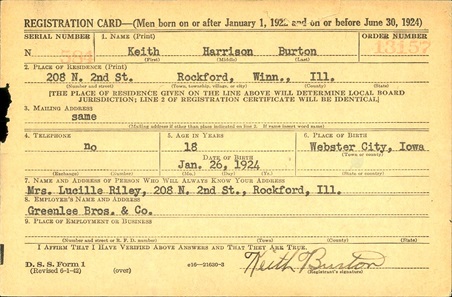 REGISTRATION CARD—(Men born on or after January 1, 1922 and on or before June 30, 1924)
SERIAL NUMBER 1. NAME (Print) ORDER NUMBER
N 584 Keith Harrison Burton 13157
(First) (Middle) (Last)
2. PLACE OF RESIDENCE (Print)
208 N. 2nd St. Rockford, Winn., Ill.
(Number and street) (Town, township, village, or city) (County) (State)
[THE PLACE OF RESIDENCE GIVEN ON THE LINE ABOVE WILL DETERMINE LOCAL BOARD
JURISDICTION; LINE 2 OF REGISTRATION CERTIFICATE WILL BE IDENTICAL]
3. MAILING ADDRESS
same
[Mailing address if other than place indicated on line 2. If same insert word same]
4. TELEPHONE 5. AGE IN YEARS 6. PLACE OF BIRTH
no 18 Webster City, Iowa
(Town or county)
DATE OF BIRTH
Jan. 26, 1924
(Exchange) (Number) (Mo.) (Day) (Yr.) (State or country)
7. NAME AND ADDRESS OF PERSON WHO WILL ALWAYS KNOW YOUR ADDRESS
Mrs. Lucille Riley, 208 N. 2nd St., Rockford, Ill.
8. EMPLOYER'S NAME AND ADDRESS
Greenlee Bros. & Co.
9. PLACE OF EMPLOYMENT OR BUSINESS
(Number and street or R. F. D. number) (Town) (County) (State)
I AFFIRM THAT I HAVE VERIFIED ABOVE ANSWERS AND THAT THEY ARE TRUE.
D. S. S. Form 1
(Revised 6-1-42) (over) Keith Burton
(Registrant's signature)